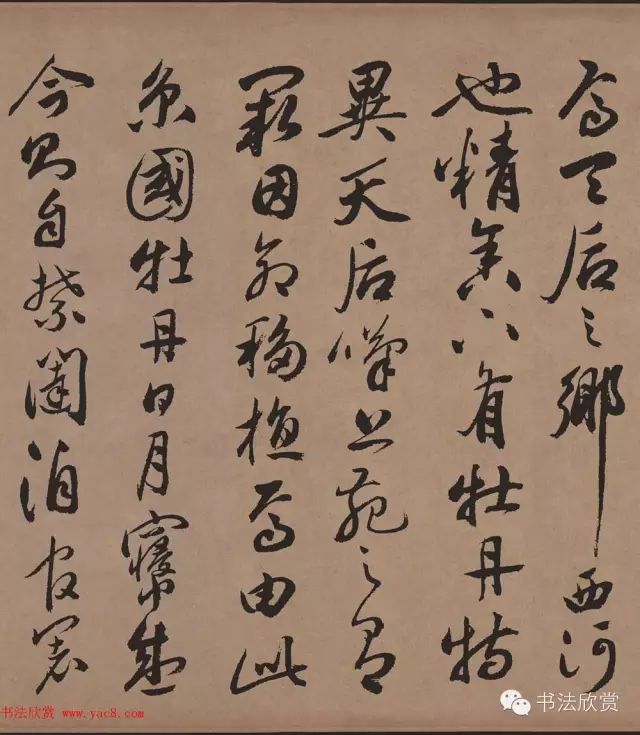 焉天后之鄉西河
也精舍下有牡丹特
異天后嘆上苑之有
闕因命移植焉由此
京國牡丹日月寖盛
今則自禁闥洎官署
书法欣赏 www.yac8.com
书法欣赏